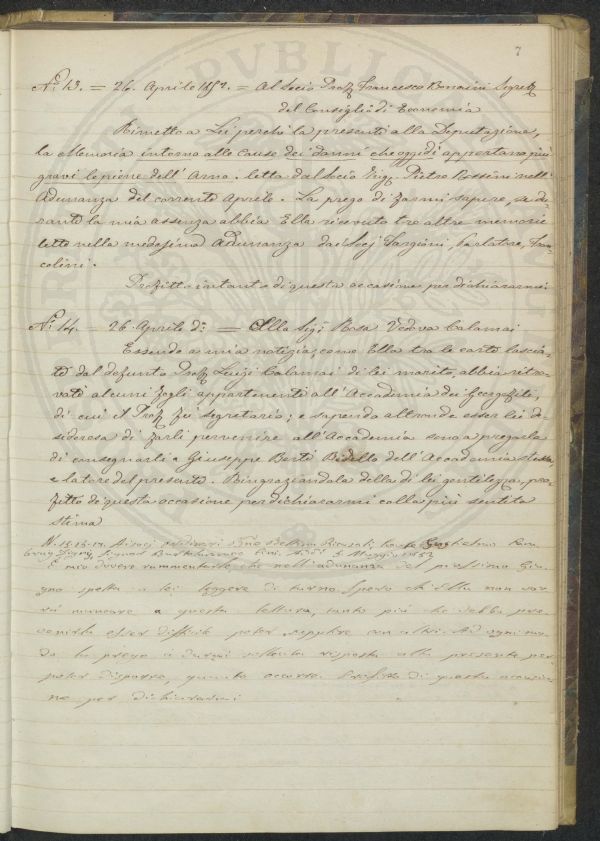 7
N.° 13. = 26. Aprile 1852. = Al Socio Prof. Francesco Bonaini Segret.
del Consiglio di Economia
Rimetto a Lei perchè la presenti alla Deputazione,
la Memoria intorno alle cause dei danni che oggidì apportano più
gravi le piene dell' Arno. letta dal Socio Sig. Pietro Rossini nell'
Adunanza del corrente Aprile. La prego di farmi sapere, se du-
rante la mia assenza abbia Ella ricevuto tre altre memorie
lette nella medesima Adunanza dai Socj Targioni, Parlatore,
Profitto intanto di questa occasione per dichiararmi
N.° 14. = 26 Aprile d.° = Alla Sig.ª Rosa Vedova Calamai
Essendo a mia notizia come Ella tra le carte lascia-
te dal defunto Prof. Luigi Calamai di lei marito, abbia ritro-
vati alcuni fogli appartenenti all' Accademia dei Georgofili,
di cui il Prof. fu segretario; e sapendo altronde esser lei de-
siderosa di farli pervenire all' Accademia sono a pregarla
di consegnarli a Giuseppe Berti Bidello dell' Accademia stessa,
e latore del presente. Ringraziandola della di lei gentilezza, pro-
fitto di questa occasione per dichiararmi colla più sentita
stima
N. 15. 16. 17. Ai socj ordinari Bettino Ricasoli, Conte Guglielmo Cam-
bray Digny, 5 Maggio 1852
È mio dovere rammentarle che nell' adunanza del prossimo Giu-
gno spetta a lei leggere di turno. Spero che Ella non vor-
rà mancare a questa lettura, tanto più che debbo pre-
venirla esser difficile poter supplire con altri. Ad ogni mo-
do la prego a darmi sollecita risposta alla presente per
poter disporre, quanto occorre. Profitto di questa occasio-
ne per dichiararmi